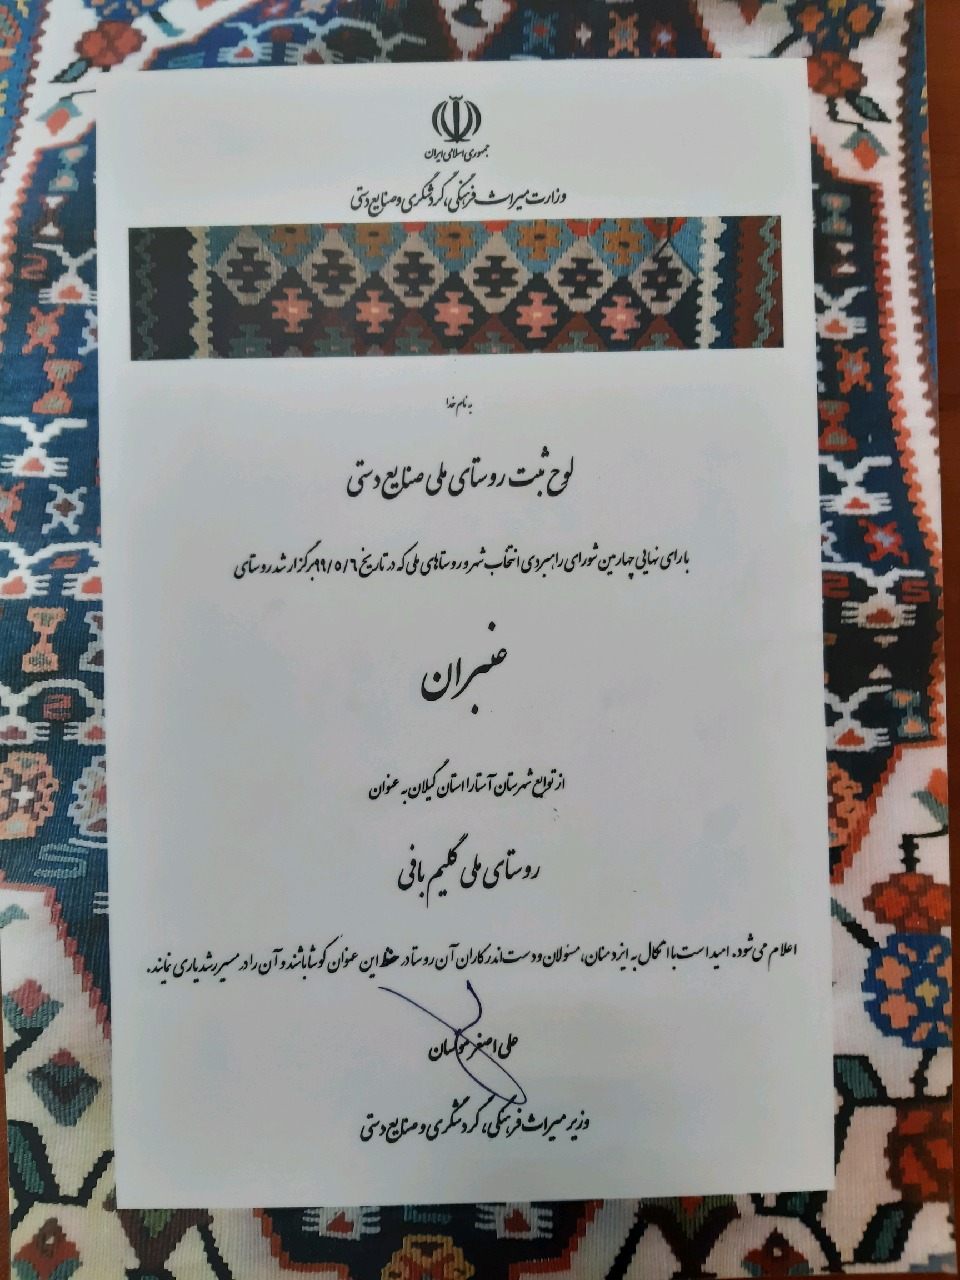 جمهوری اسلامی ایران
وزارت میراث فرهنگی، گردشگری و صنایع دستی
به نام خدا
لوح ثبت روستای ملی صنایع دستی
با رای نهایی چهارمین شورای راهبردی انتخاب شهر و روستاهای ملی که در تاریخ ۹۹/۵/۶ برگزار شد روستای
عنبران
از توابع شهرستان آستارا استان گیلان به عنوان
روستای ملی گلیم بافی
اعلام می‌شود. امید است با اتکال به ایزد منان، مسئولان و دست‌اندرکاران آن روستا در حفظ این عنوان کوشا باشند و آن را در مسیر رشد یاری نمایند.
علی اصغر مونسان
وزیر میراث فرهنگی، گردشگری و صنایع دستی